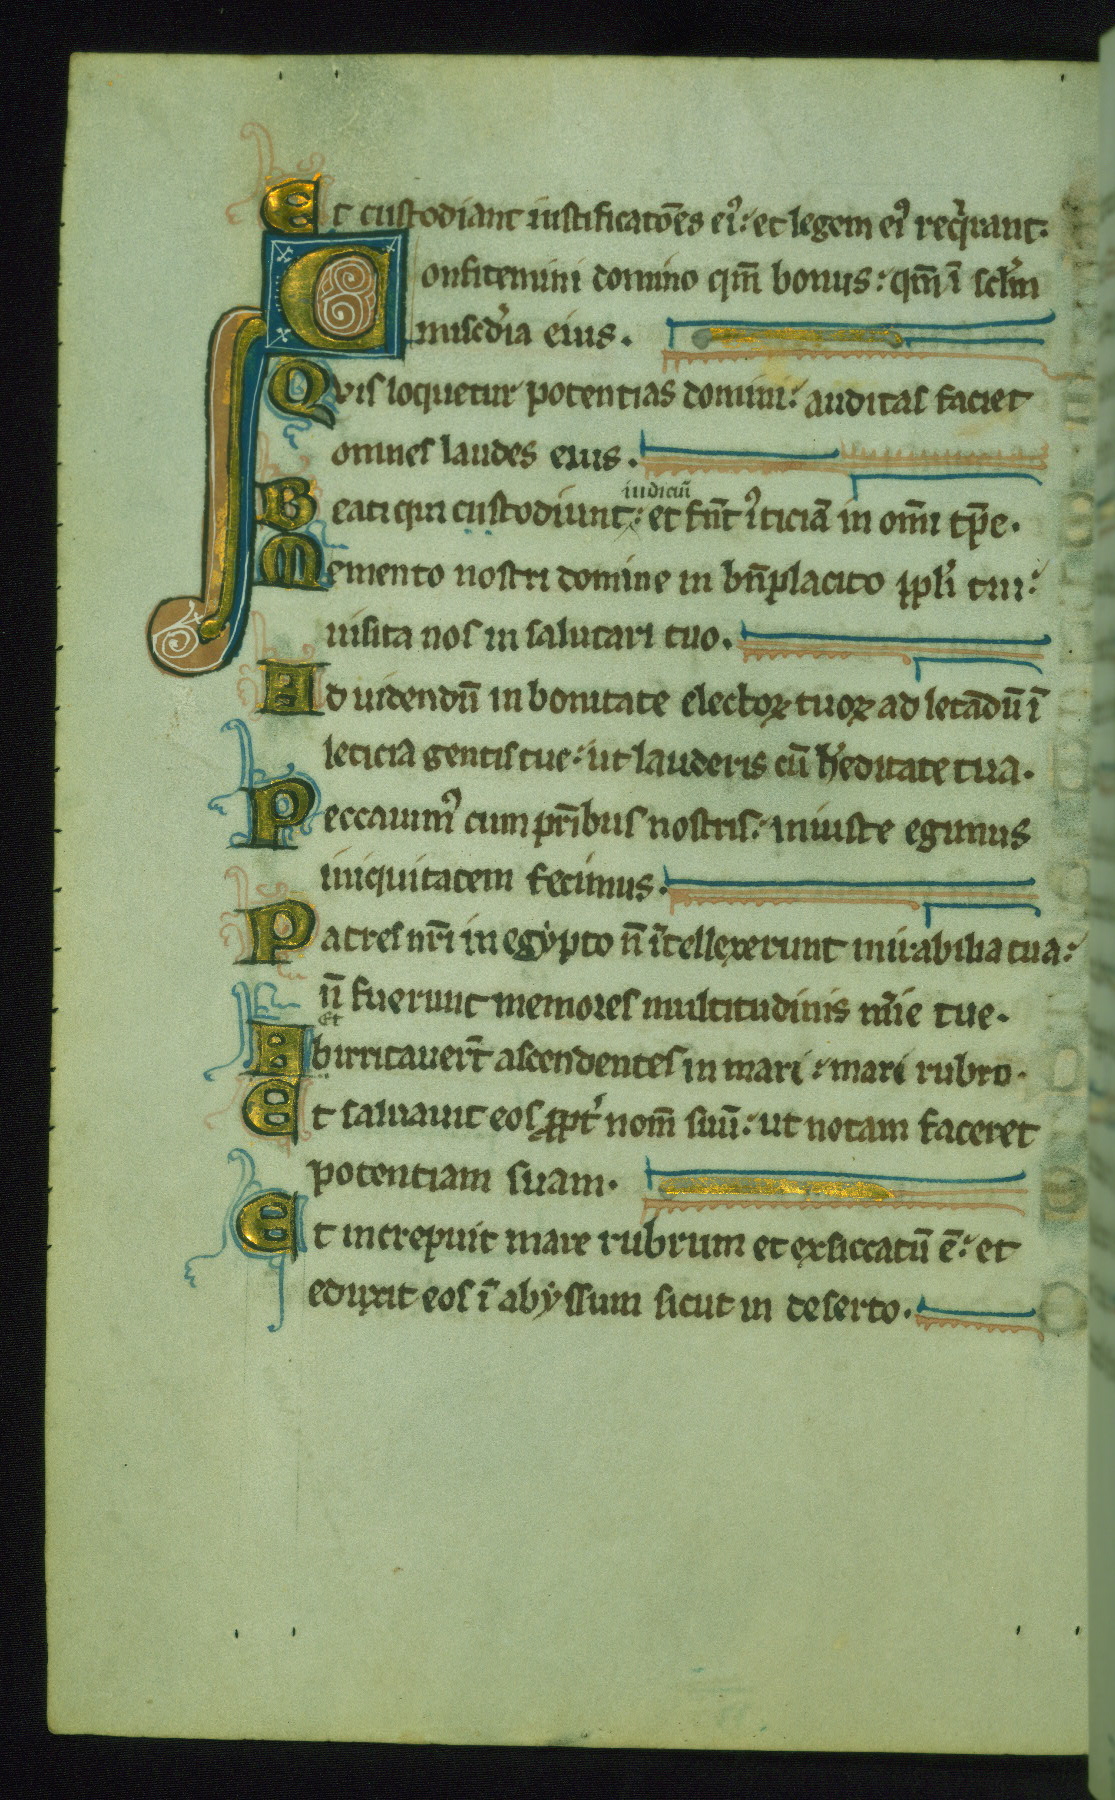 Et custodiant iustificatōes ei᷒: et legem ei᷒ reqͥrant.
Confitemini domino qm̄ bonus: qm̄ ī sclm̄
miscd̓ia eius.
Qvis loquetur potentias domini: auditas faciet
omnes laudes eius.
iudiciū
Beati qui custodiunt: et fn̄t iͥticiā in om̄i tp̄e.
Memento nostri domine in bn̄placito ppl̓i tui:
uisita nos in salutari tuo.
Ad uidendū in bonitate electoꝝ tuoꝝ ad letādū ī
leticia gentis tue: ut lauderis cū h̓editate tua.
Peccauim᷒ cum pr̄ibus nostris: iniuste egimus
iniquitatem fecimus.
Patres nr̄i in egypto n̄ ītellexerunt mirabilia tua:
n̄ fuerunt memores multitudinis mīe tue.
Et
Abirritauer̄t ascendentes in mari: mari rubro.
Et saluauit eos ꝓpt̓ nom̄ suū: ut notam faceret
potentiam suam.
Et increpuit mare rubrum et exsiccatū ē: et
eduxit eos ī abyssum sicut in deserto.